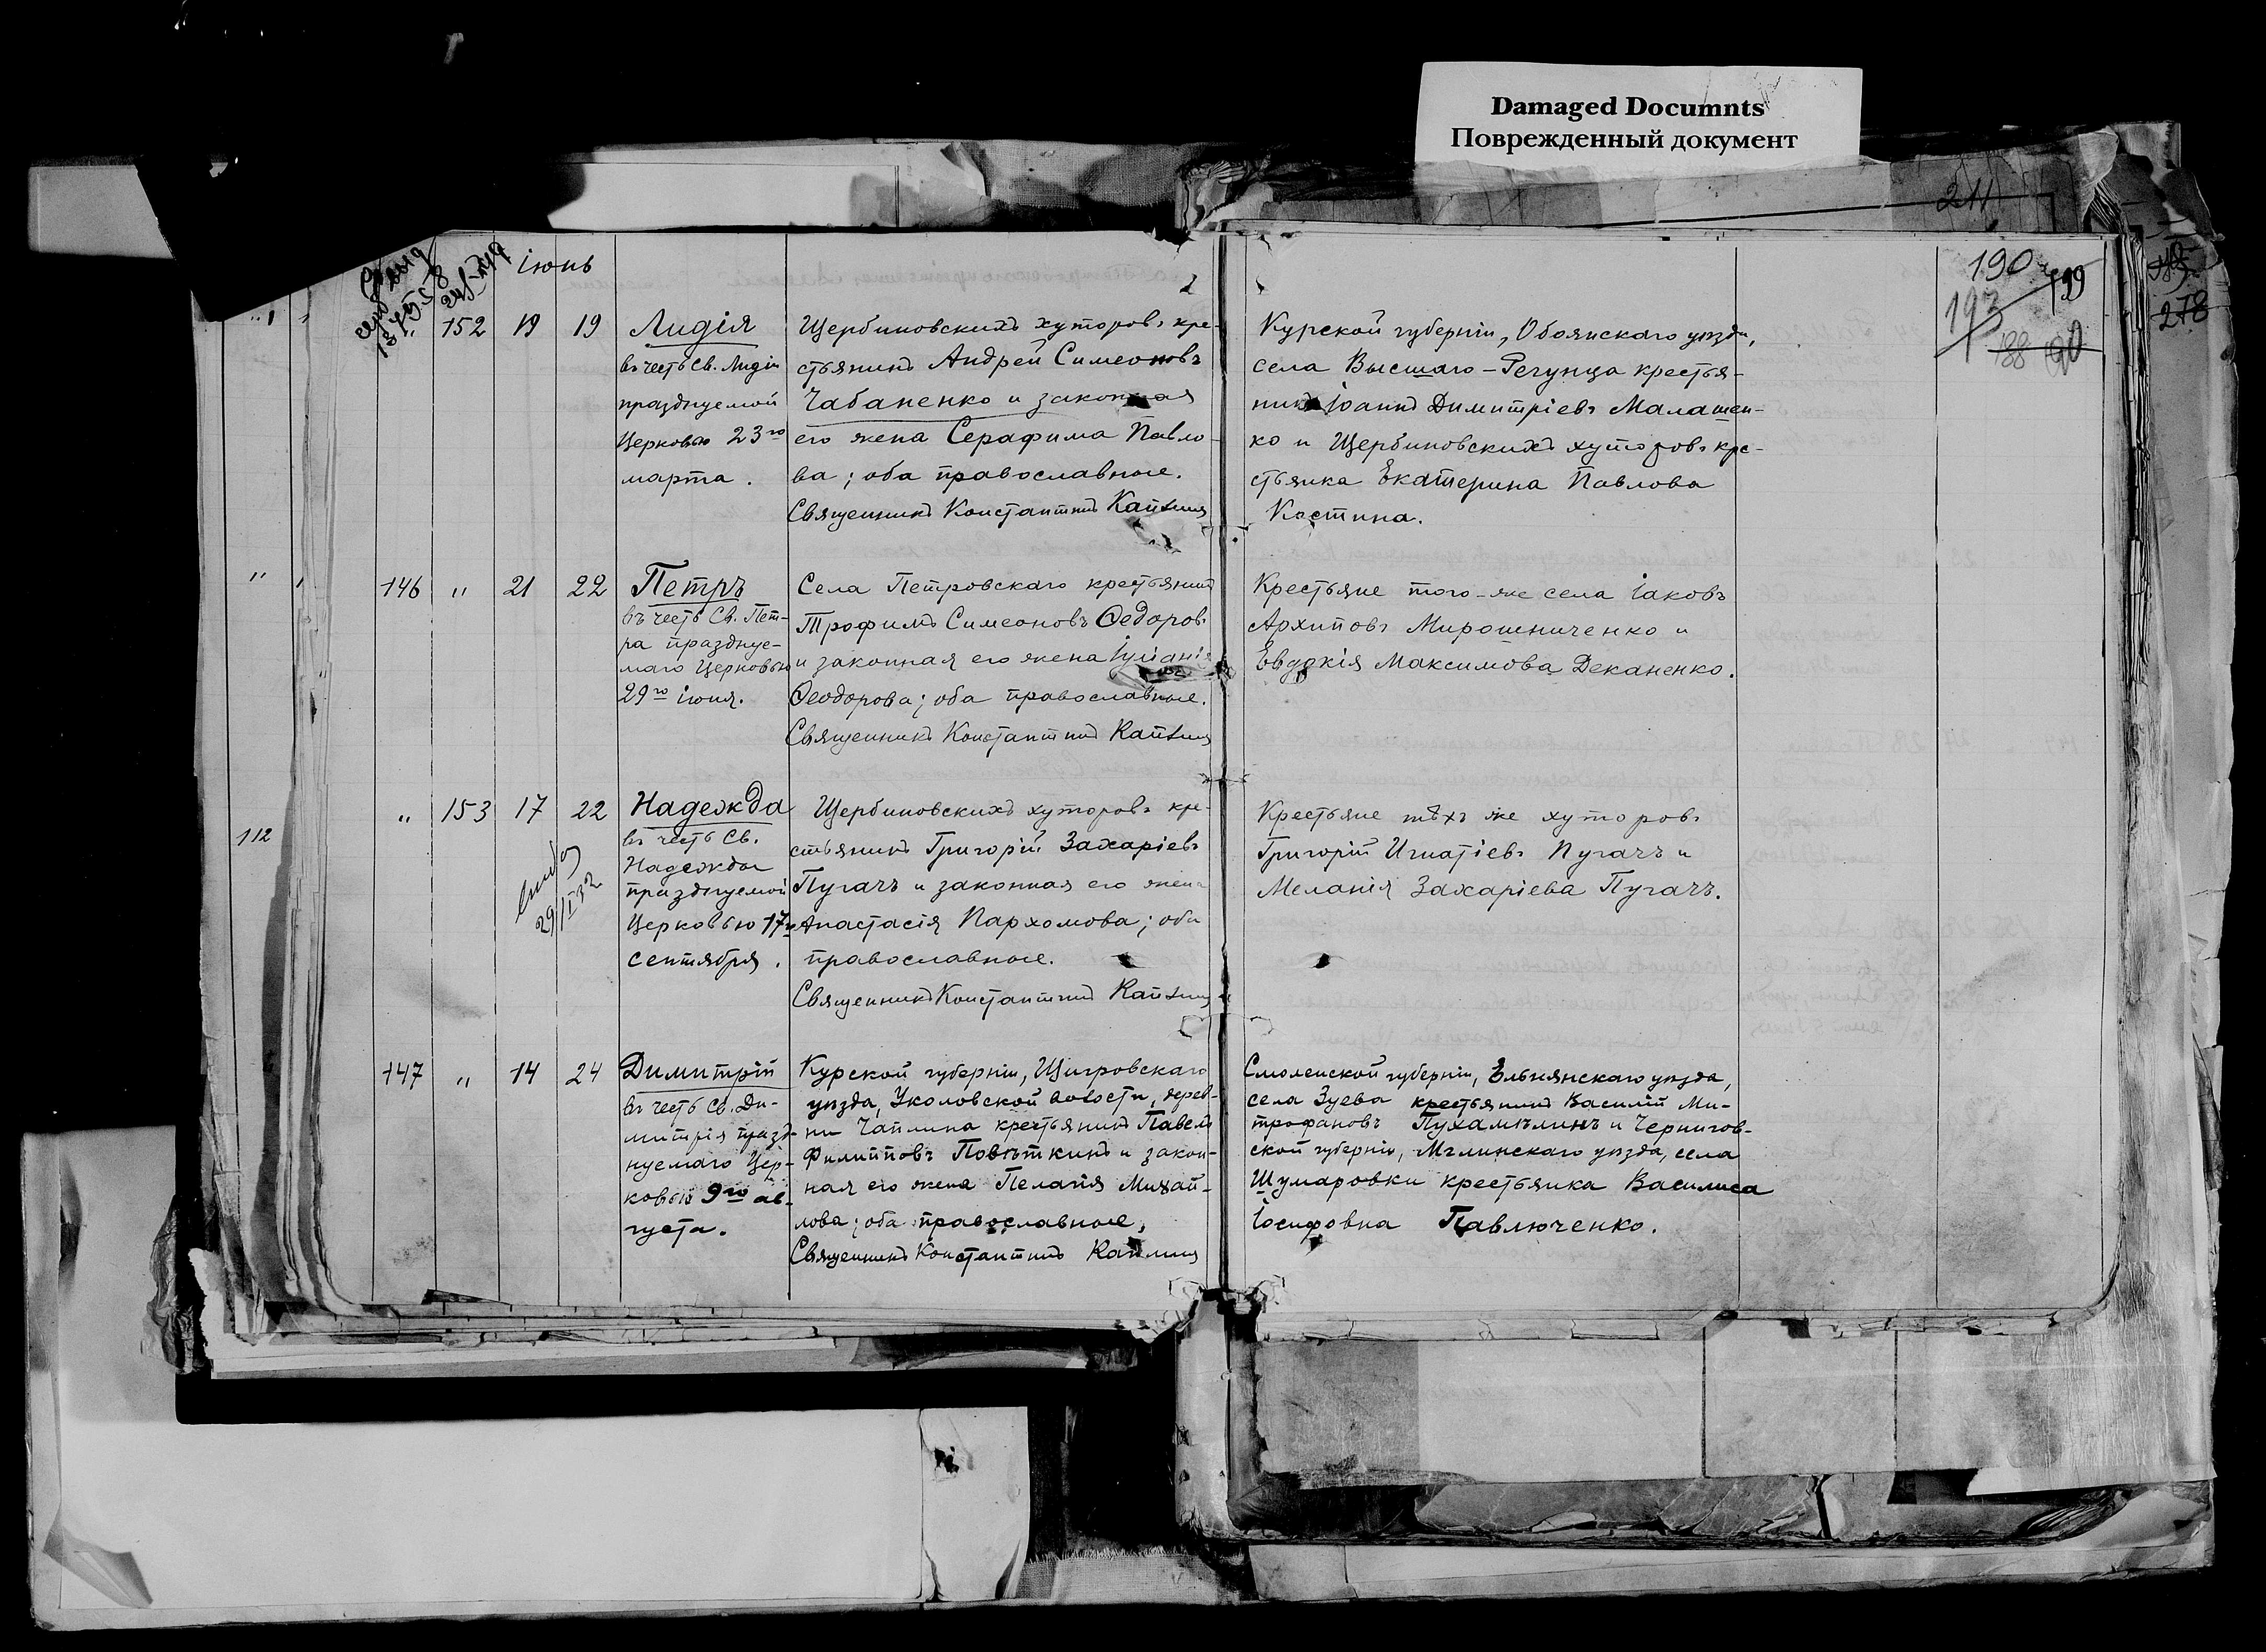 Damaged Documnts
Поврежденный документ
211
іюнь
190
199
193
188
278
" 152 19 19
Лидія
въ честь Св. Лидіи
празднуемой
Церковью 23го
марта.
Щербиновскихъ хуторовъ кре-
стьянинъ Андрей Симеоновъ
Чабаненко и законная
его жена Серафима Павло-
ва; оба православные.
Священникъ Константинъ
Курской губерніи, Обоянскаго уѣзда,
села Высшаго-Регунца крестья-
нинъ Іоаннъ Димитріевъ Малашен-
ко и Щербиновскихъ хуторовъ кре-
стьянка Екатерина Павлова
Костина.
146 " 21 22
Петръ
въ честь Св. Пет-
ра празднуе-
маго Церковью
29го іюня.
Села Петровскаго крестьянинъ
Трофимъ Симеоновъ Ѳедоровъ
и законная его жена Іуліанія
Ѳеодорова; оба православные.
Священникъ Константинъ
Крестьяне того-же села Іаковъ
Архиповъ Мирошниченко и
Евдокія Максимова Деканенко.
112
" 153 17 22
29/II 32
Надежда
въ честь Св.
Надежды
празднуемой
Церковью 17го
сентября.
Щербиновскихъ хуторовъ кре-
стьянинъ Григорій Захаріевъ
Пугачъ и законная его жена
Анастасія Пархомова; оба
православные.
Священникъ Константинъ
Крестьяне тѣхъ же хуторовъ
Григорій Игнатіевъ Пугачъ и
Меланія Захаріева Пугачъ.
147 " 14 24
Димитрій
въ честь Св. Ди-
митрія празд-
нуемаго Цер-
ковью 9го ав-
густа.
Курской губерніи, Щигровскаго
уѣзда, Уколовской волости, дерев-
ни Чаплина крестьянинъ Павелъ
Филипповъ Повѣткинъ и закон-
ная его жена Пелагія Михай-
лова; оба православные,
Священникъ Константинъ
Смоленской губерніи, Ельнянскаго уѣзда,
села Зуева крестьянинъ Василій Ми-
трофановъ Пухамѣлинъ и Чернигов-
ской губерніи, Мглинскаго уѣзда, села
Шумаровки крестьянка Василиса
Іосифовна Павлюченко.